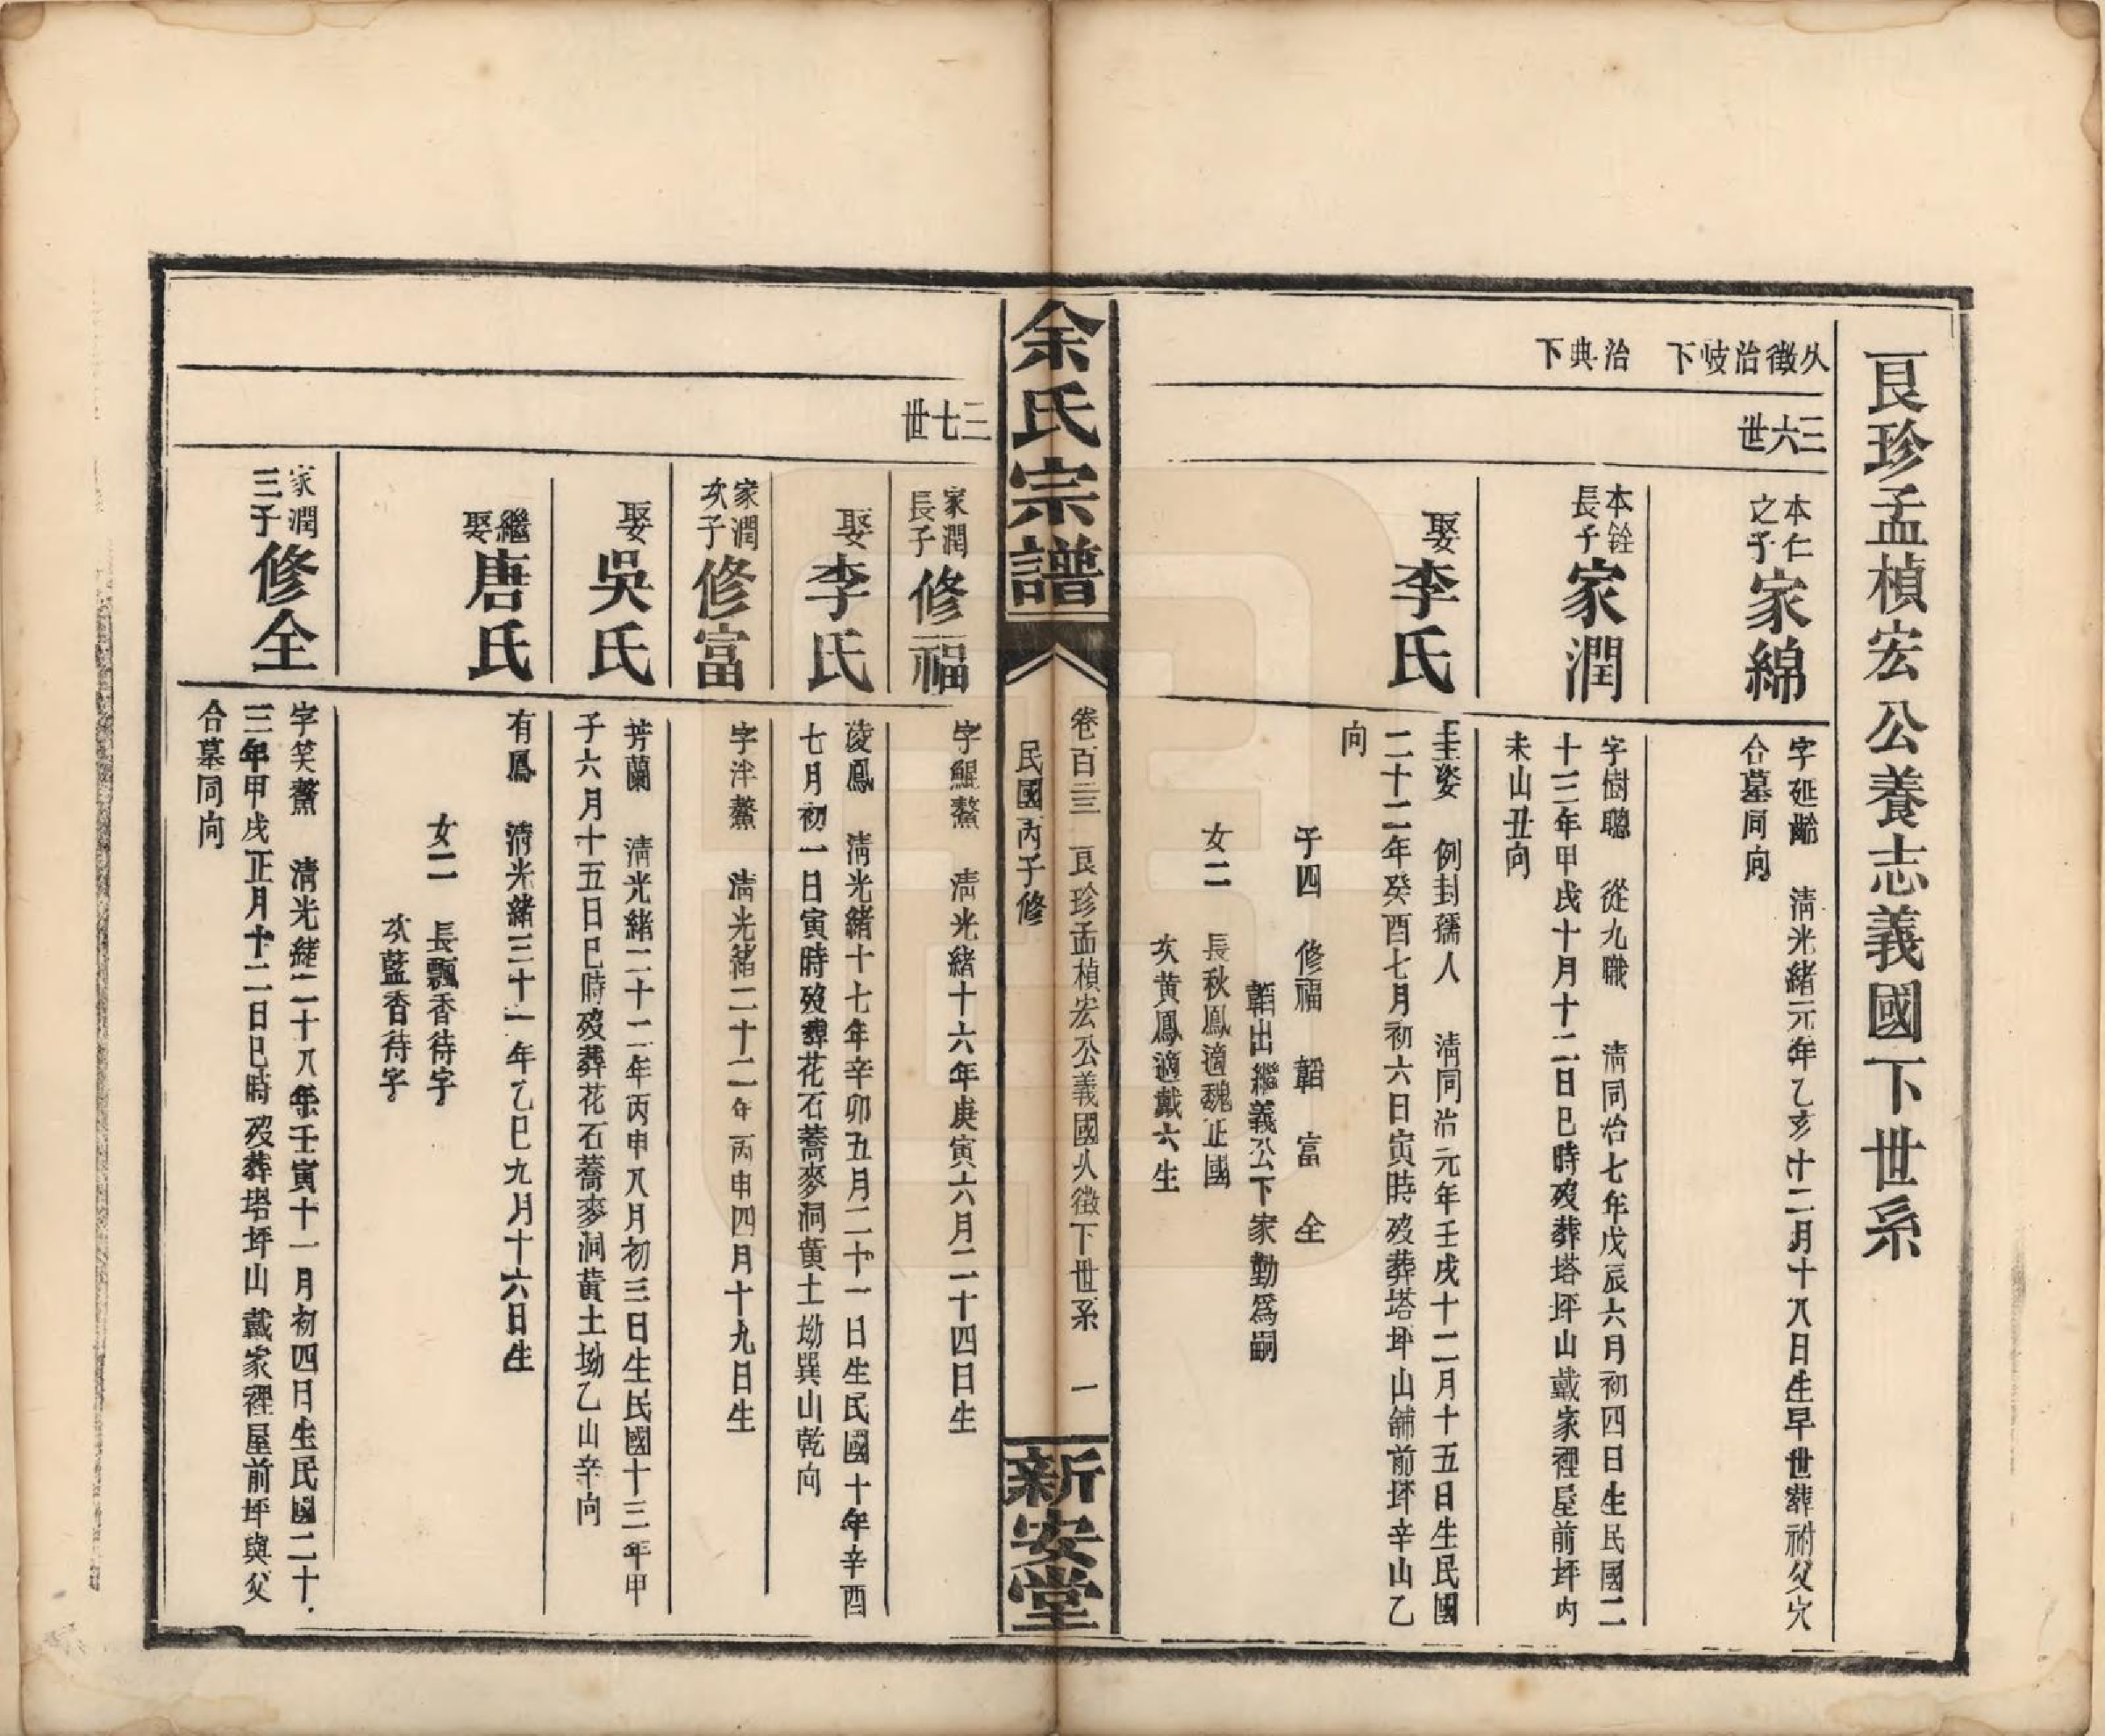 艮珍孟楨宏公養志義國下世系
久徵治岐下
治典下
三六世
本仁之子家綿
字延齡　清光緒元年乙亥十二月十八日生早世葬祔父穴
合墓同向
本銓長子家潤
字樹聰　從九職　清同治七年戊辰六月初四日生民國二
十三年甲戌十月十二日巳時歿葬塔坪山戴家裡屋前坪內
未山丑向
娶李氏
圭姿　例封孺人　清同治元年壬戌十二月十五日生民國
二十二年癸酉七月初六日寅時歿葬塔坪山舖前坪辛山乙
向
子四　修福　韜　富　全
韜出繼義公下家勤爲嗣
女二　長秋鳳適魏正國
次黄鳳適戴六生
余氏宗譜
卷百三三　艮珍孟楨宏公義國久徵下世系　一
民國丙子修
新安堂
三七世
家潤長子修福
字鯤鰲　清光緒十六年庚寅六月二十四日生
娶李氏
淩鳳　清光緒十七年辛卯五月二十一日生民國十年辛酉
七月初一日寅時歿葬花石蕎麥洞黄土坳巽山乾向
家潤次子修富
字泮鰲　清光緒二十二年丙申四月十九日生
娶吳氏
芳蘭　清光緒二十二年丙申八月初三日生民國十三年甲
子六月十五日巳時歿葬花石蕎麥洞黄土坳乙山辛向
繼娶唐氏
有鳳　清光緒三十一年乙巳九月十六日生
女二　長飄香待字
次藍香待字
家潤三子修全
字笑鰲　清光緒二十八年壬寅十一月初四日生民國二十
三年甲戌正月十二日巳時歿葬塔坪山戴家裡屋前坪與父
合墓同向